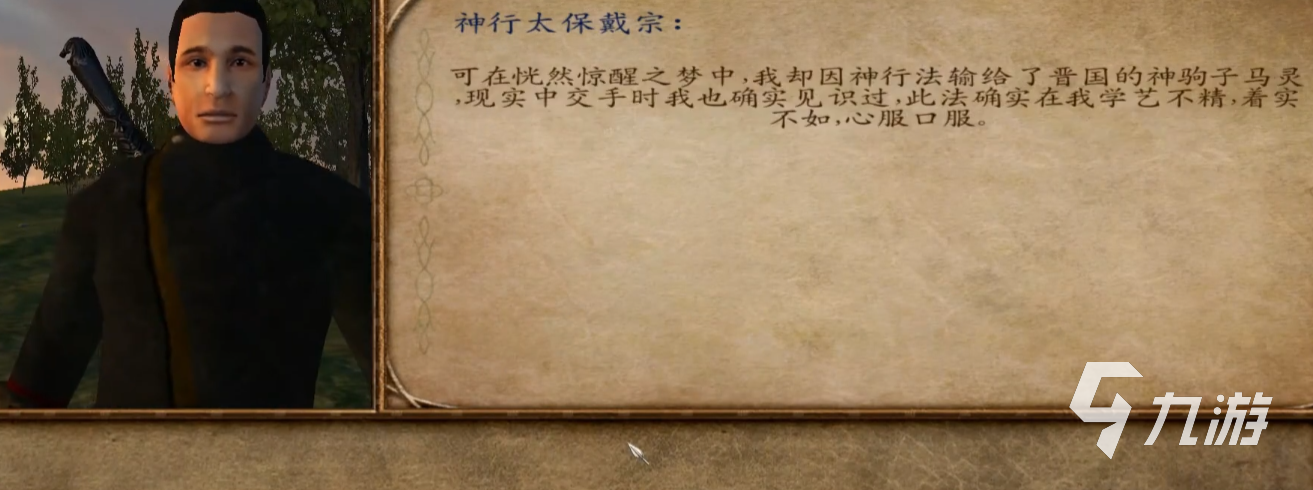 神行太保戴宗：
可在恍然惊醒之梦中,我却因神行法输给了晋国的神驹子马灵
,现实中交手时我也确实见识过,此法确实在我学艺不精,着实
不如,心服口服。
九游